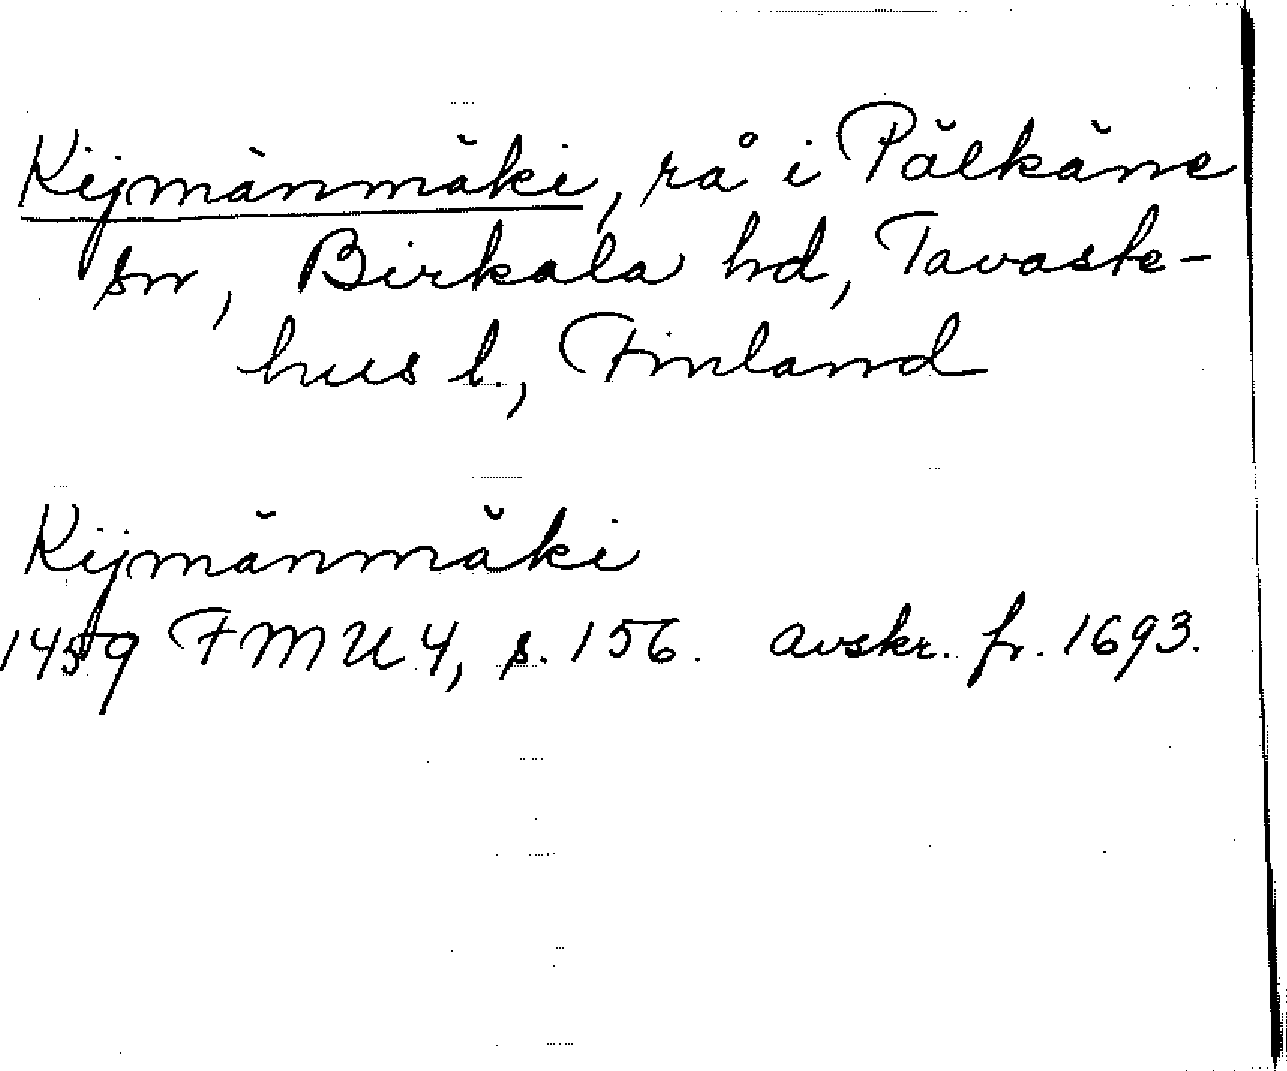 Kijmänmäki, rå i Pälkäne
sn, Birkala hd, Tavaste-
hus l., Finland
Kijmänmäki
1459 FMU 4, s. 156. avskr. fr. 1693.